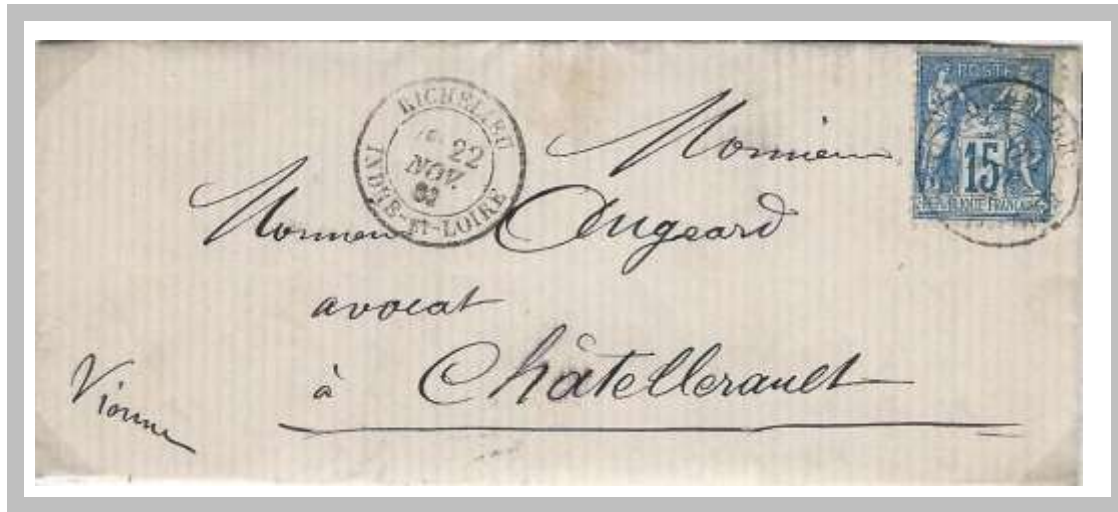 RICHELIEU
22
NOV.
82
INDRE-ET-LOIRE
POSTE
15
Monsieur
Monsieur Augeard
avocat
à Châtellerault
Vienne